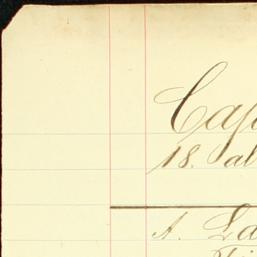 Cap
18. al
A. La